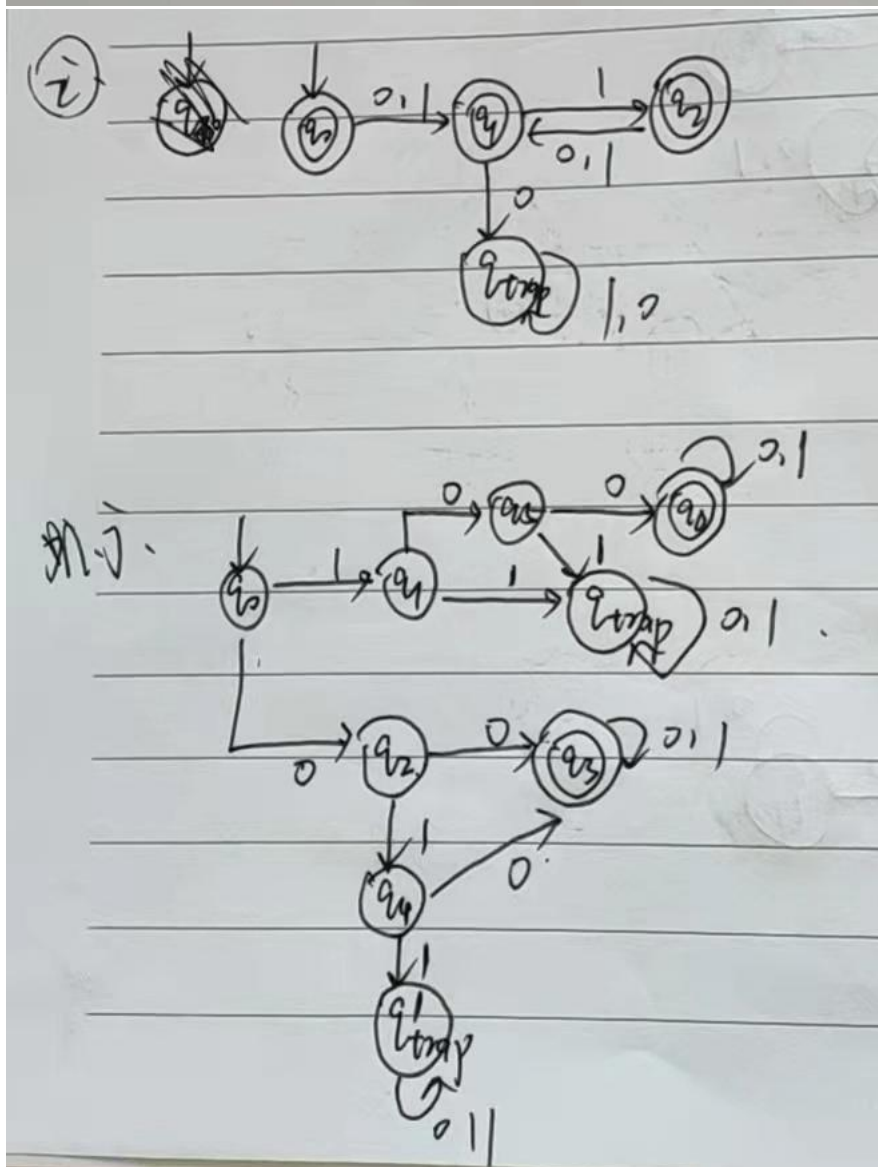 i
q₀ 0,1 q₁ 1 q₂
0,1
0
q_trap 1,0
0 q₅ 0 0,1
q₀ 1 q₁ 1 1 q_trap 0,1
0 q₂ 0 q₃ 0,1
1
q₄ 0
1
q_trap
0,1